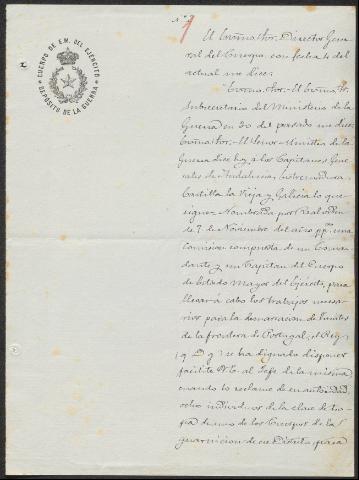 CUERPO DE E.M. DEL EJÉRCITO
DEPÓSITO DE LA GUERRA
Nº
El Excmo. Sor. Director Gene-
ral del Cuerpo con fecha 4 del
actual me dice:
Excmo. Sor.- El Excmo. Sr.
Subsecretario del Ministerio de la
Guerra en 30 del pasado me dice:
Excmo. Sor.- El Senor Ministro de la
Guerra dice hoy á los Capitanes Gene-
rales de Andalucia, Estremadura,
Castilla la Vieja y Galicia lo que
sigue: Nombrada por Real orden
de 7 de Noviembre del año ppº. una
Comision compuesta de un Coman-
dante y un Capitan del Cuerpo
de Estado Mayor del Ejército, para
llevar á cabo los trabajos necesa-
rios para la demarcacion de limites
de la frontera de Portugal; el Rey
(q. D. g.) se ha dignado disponer
facilite V.E. al Gefe de la misma
cuando lo reclame de su autoridad,
ocho individuos de la clase de tro-
pa de uno de los Cuerpos de la
guarnicion de ese Distrito, para